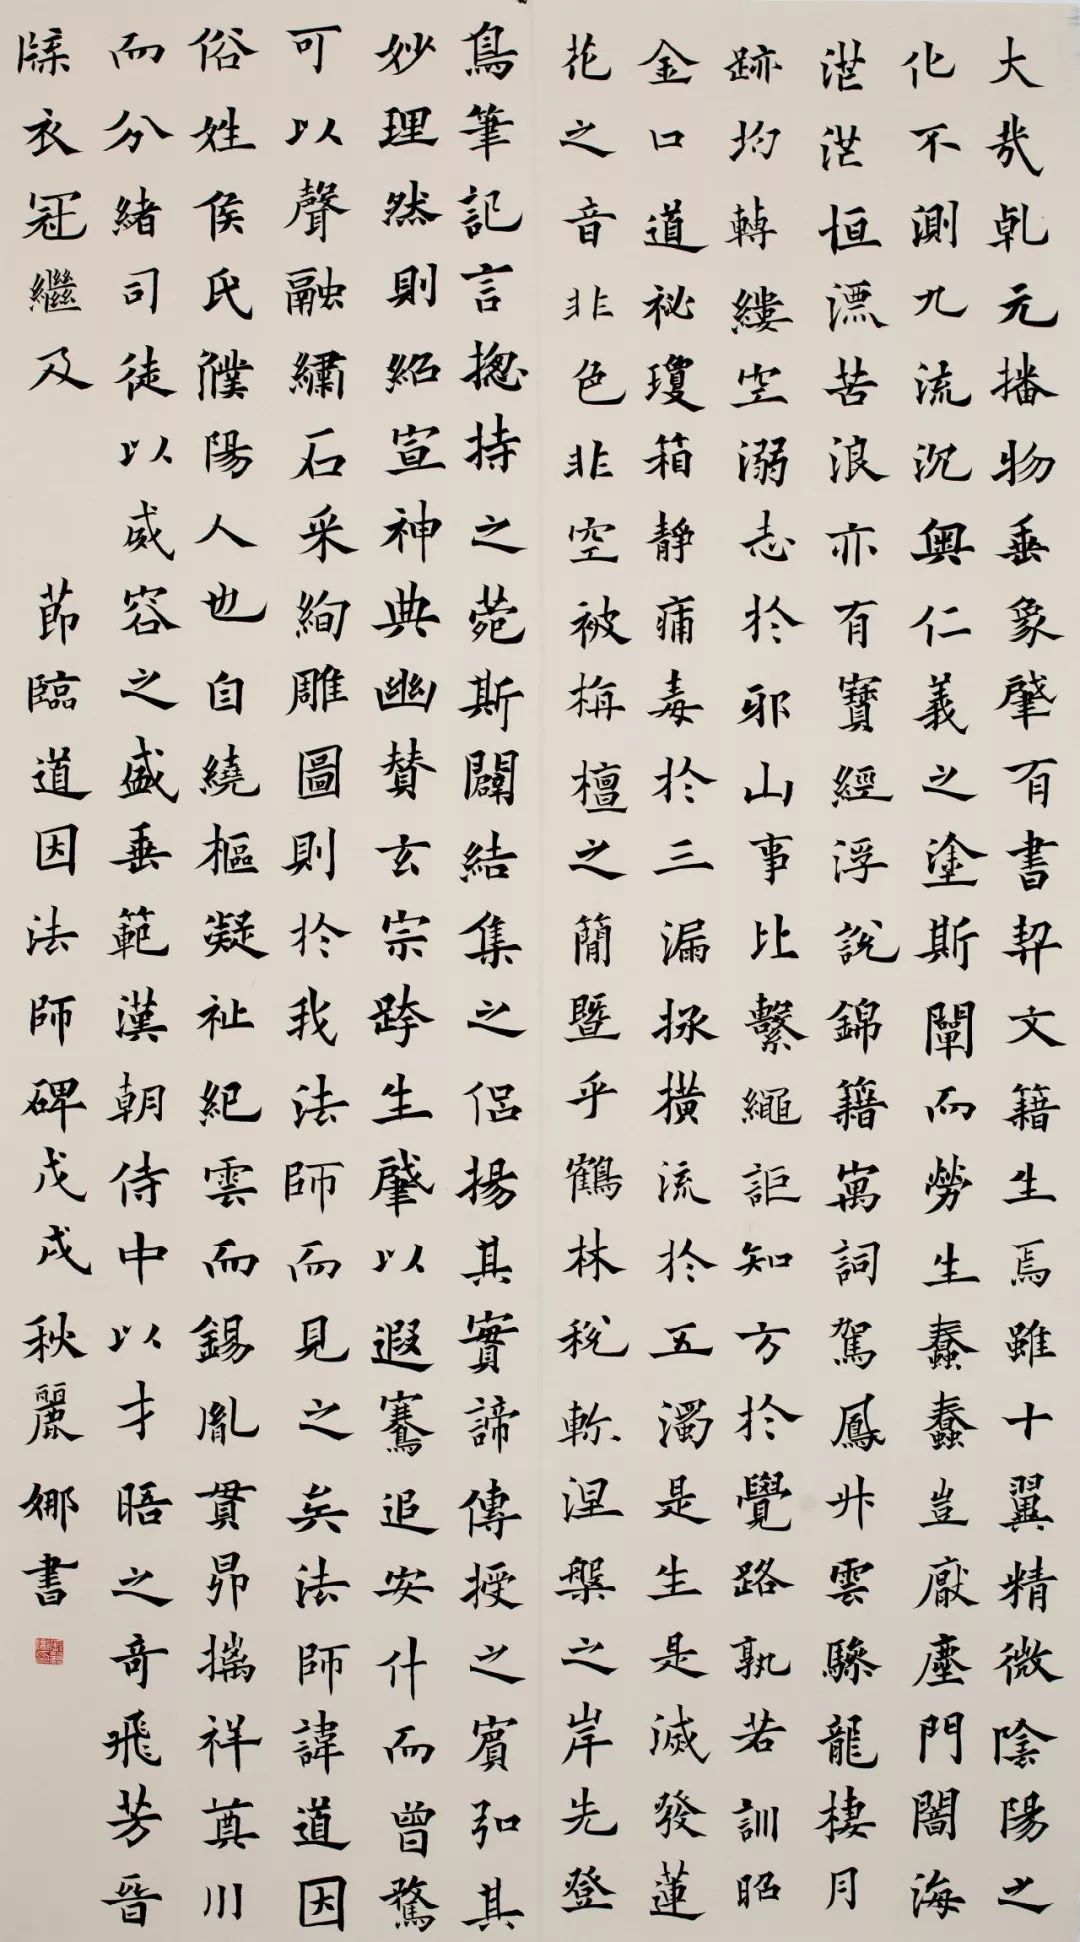 大哉乹元播物垂象肇有書契文籍生焉雖十翼精微陰陽之
化不測九流沉奧仁義之塗斯闡而勞生蠢蠢豈厭塵門闇海
茫茫恒漂苦浪亦有寶經浮說錦籍寓詞駕鳳升雲驂龍棲月
跡均轉縷空溺志於邪山事比繫繩詎知方於覺路孰若訓昭
金口道祕瓊箱靜痛毒於三漏拯橫流於五濁是生是滅發蓮
花之音非色非空被栴檀之簡暨乎鶴林稅軫涅槃之岸先登
鳥筆記言揔持之菀斯闢結集之侶揚其實諦傳授之賓弘其
妙理然則紹宣神典幽贊玄宗跨生肇以遐騫追安什而曾騖
可以聲融繡石采絢雕圖則於我法師而見之矣法師諱道因
俗姓侯氏濮陽人也自繞樞凝祉紀雲而錫胤貫昴摛祥奠川
而分緒司徒以威容之盛垂範漢朝侍中以才晤之奇飛芳晉
牒衣冠繼及 節臨道因法師碑戊戌秋麗娜書